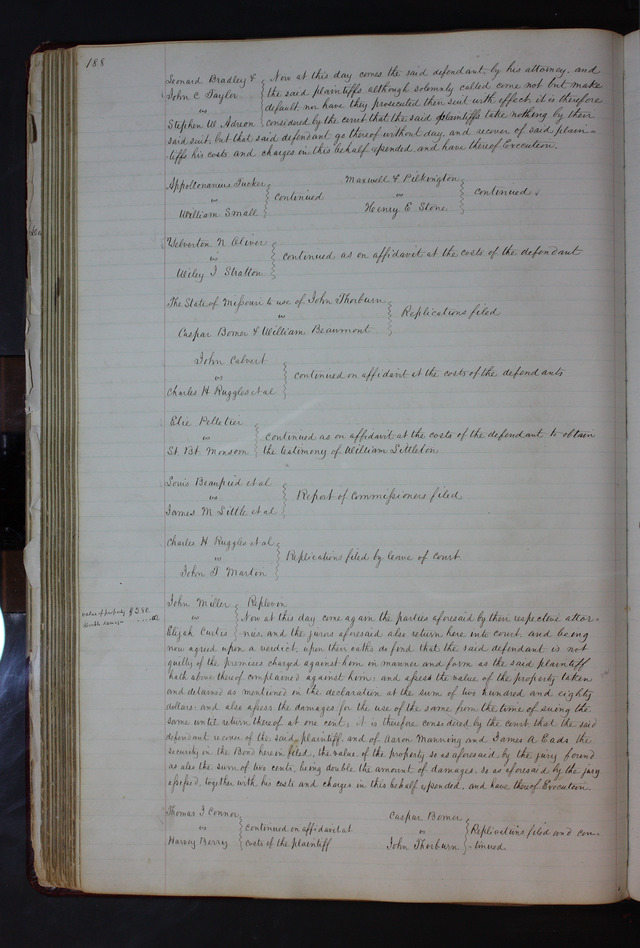 188
Leonard Bradley &
John C Taylor
vs
Stephen W Adreon
Now at this day comes the said defendant, by his attorney, and
the said plaintiffs although solemnly called come not but make
default nor have they prosecuted their suit with effect, it is therefore
considered by the court that the said plaintiffs take nothing by their
said suit, but that said defendant go thereof without day, and recover of said plain=
tiffs his costs and charges in this behalf expended, and have thereof Execution.
Appollonarius Tucker
vs
William Small
continued
Maxwell & Pilkington
vs
Henry E Stone
continued.
Yelverton N Oliver
vs
Wiley J Stratton
continued as on affidavit at the costs of the defendant
The State of Missouri to use of John Thorburn
vs
Caspar Borner & William Beaumont
Replications filed
John Calvert
vs
Charles H Ruggles et al
continued on affidavit at the costs of the defendants
Elie Pelletier
vs
St. Bt. Monsoon
continued as on affidavit at the costs of the defendant to obtain
the testimony of William Littleton
Louis Beaupied et al
vs
James M Little et al
Report of Commissioners filed
Charles H Ruggles et al
vs
John T Martin
Replications filed by leave of court
value of property $280.
double damage .02
John Miller
vs
Elijah Curtis
Replevin
Now at this day come again the parties aforesaid by their respective attor-
nies, and the jurors aforesaid also return here into court, and being
now agreed upon a verdict, upon their oaths do find that the said defendant is not
guilty of the premises charged against him in manner and form as the said plaintiff
hath above thereof complained against him: and assess the value of the property taken
and detained as mentioned in the declaration at the sum of two hundred and eighty
dollars: and also assess the damages for the use of the same from the time of suing the
same until return thereof at one cent; it is therefore considered by the court that the said
defendant recover of the said plaintiff, and of Aaron Manning and James A Eads the
security in the Bond herein filed, the value of the property so as aforesaid by the jury found
as also the sum of two cents, being double the amount of damages so as aforesaid by the jury
assessed, together with his costs and charges in this behalf expended, and have thereof Execution.
Thomas J Connor
vs
Harvey Berry
continued on affidavit at
costs of the plaintiff
Caspar Borner
vs
John Thorburn
Replications filed and con-
-tinued